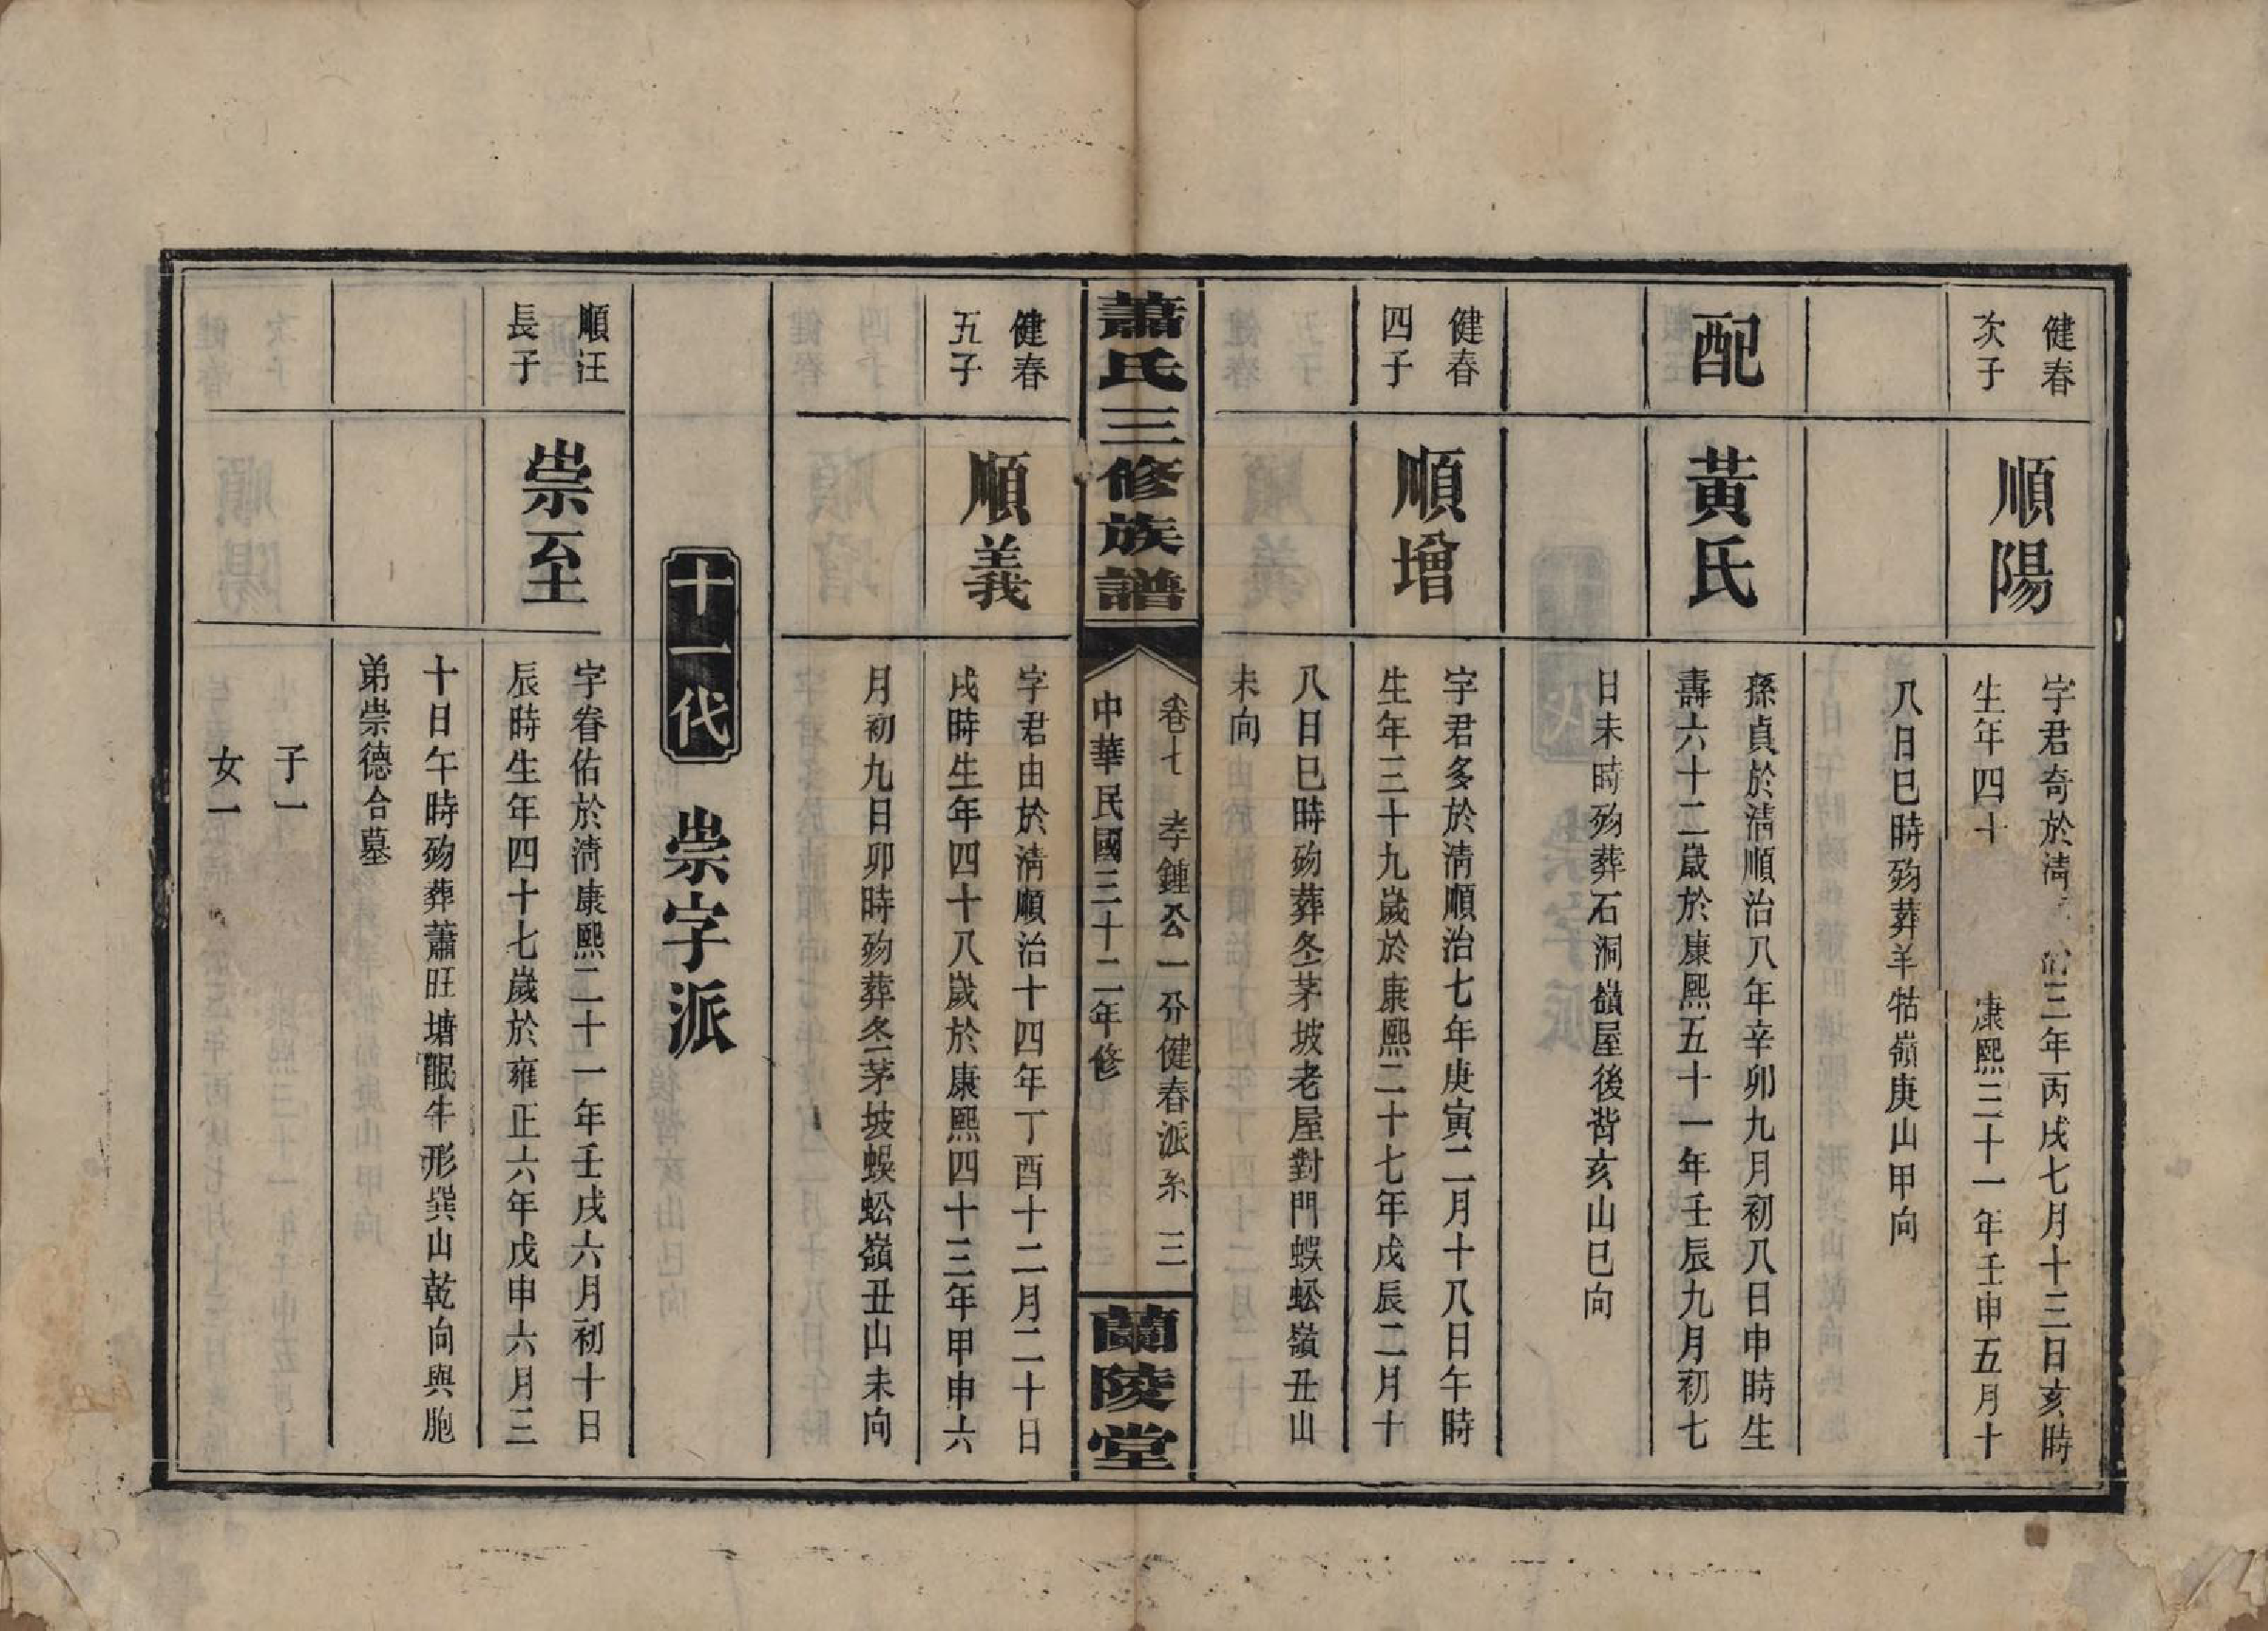 健春
次子
順陽
字君奇於清 三年丙戌七月十三日亥時
生年四十 康熙三十一年壬申五月十
八日巳時歿葬羊牯嶺庚山甲向
配
黃氏
孫貞於清順治八年辛卯九月初八日申時生
壽六十二歲於康熙五十一年壬辰九月初七
日未時歿葬石洞嶺屋後背亥山巳向
健春
四子
順增
字君多於清順治七年庚寅二月十八日午時
生年三十九歲於康熙二十七年戊辰二月十
八日巳時歿葬冬茅坡老屋對門蜈蚣嶺丑山
未向
蕭氏三修族譜
卷七 孝鍾公一分健春派系 三
中華民國三十二年修
蘭陵堂
健春
五子
順義
字君由於清順治十四年丁酉十二月二十日
戌時生年四十八歲於康熙四十三年甲申六
月初九日卯時歿葬冬茅坡蜈蚣嶺丑山未向
十一代 崇字派
順汪
長子
崇至
字眷佑於清康熙二十一年壬戌六月初十日
辰時生年四十七歲於雍正六年戊申六月三
十日午時歿葬蕭旺塘眠牛形巽山乾向與胞
弟崇德合墓
子一
女一